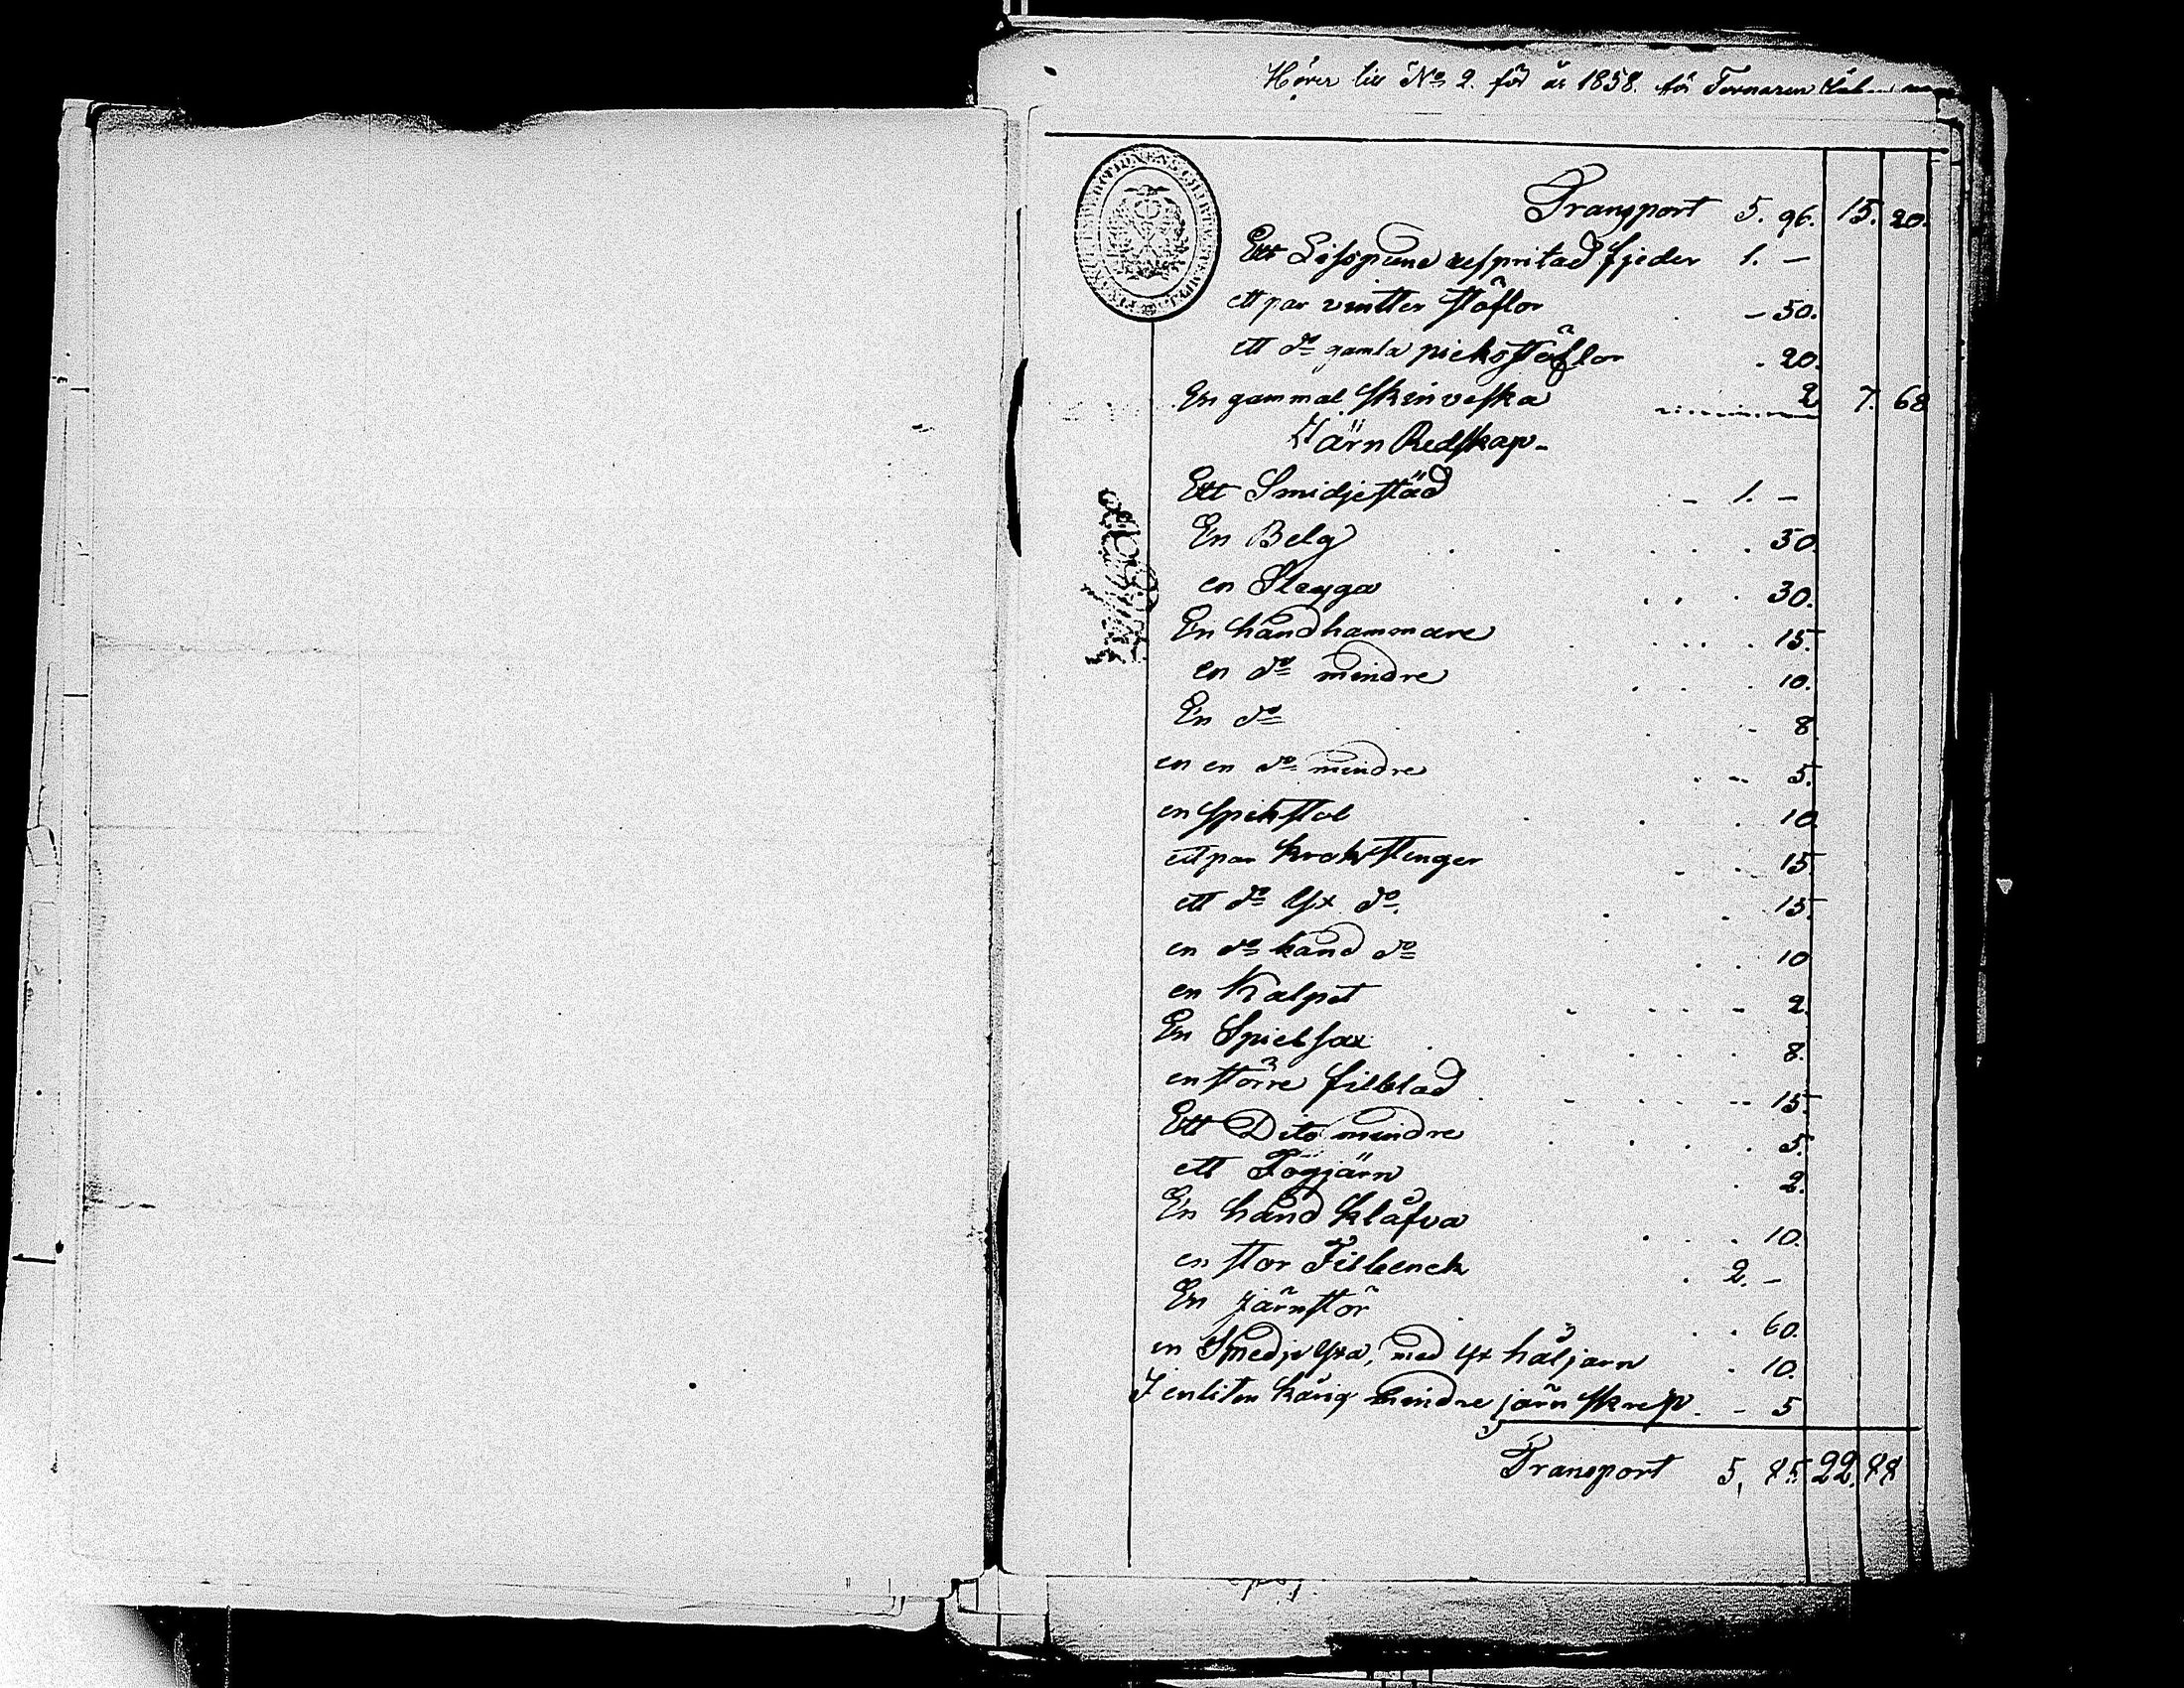 Hörer till No 2. för år 1858. för Tornaren
Transport 5. 96. 15. 20.
Ett Lisspund respritad fjeder 1. –
ett par vintter stöflor – 50.
ett do gamla piekstöflor 20.
En gammal skinveska 2 7. 68
Järn Redskap
Ett Smidjestäd 1. –
En Belg 50.
en Slegga 30.
En handhammare 15.
en do mindre 10.
En do 8
en en do mindre 5.
en spikstol 10.
ett par krokstenger 15
ett do Yx do 15.
en do hand do 10
en Kalpet 2.
En Spielsax 8.
en större filblad 15.
Ett Dito mindre 5.
ett Togjärn 2.
En hand klåfva 10.
en stor Filbenck 2. –
En järnstör 60.
en Smedje Yxa, med Yx håljarn 10.
I en liten kårig mindre järn skrep 5
Transport 5, 85. 22. 88